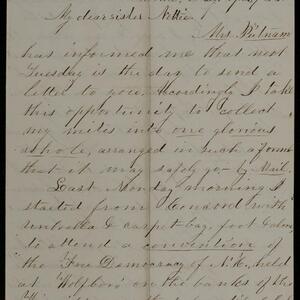 My dear sister Nettie
Mrs. Putnam
has informed me that next
Tuesday is the day to send a
letter to you. Accordingly I take
this opportunity to collect
my wits into one glorious
whole, arranged in such a form
that it may safely go by Mail.
Last Monday morning I
started from Concord with
umbrella & carpet-bag
to attend a convention of
the Free Democracy of N.H., held
at Wolfboro on the banks of the